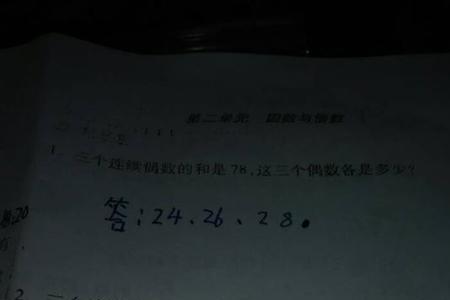 第二单元 因数与倍数
1. 三个连续偶数的和是78,这三个偶数各是多少?
答:24、26、28。
:20
2